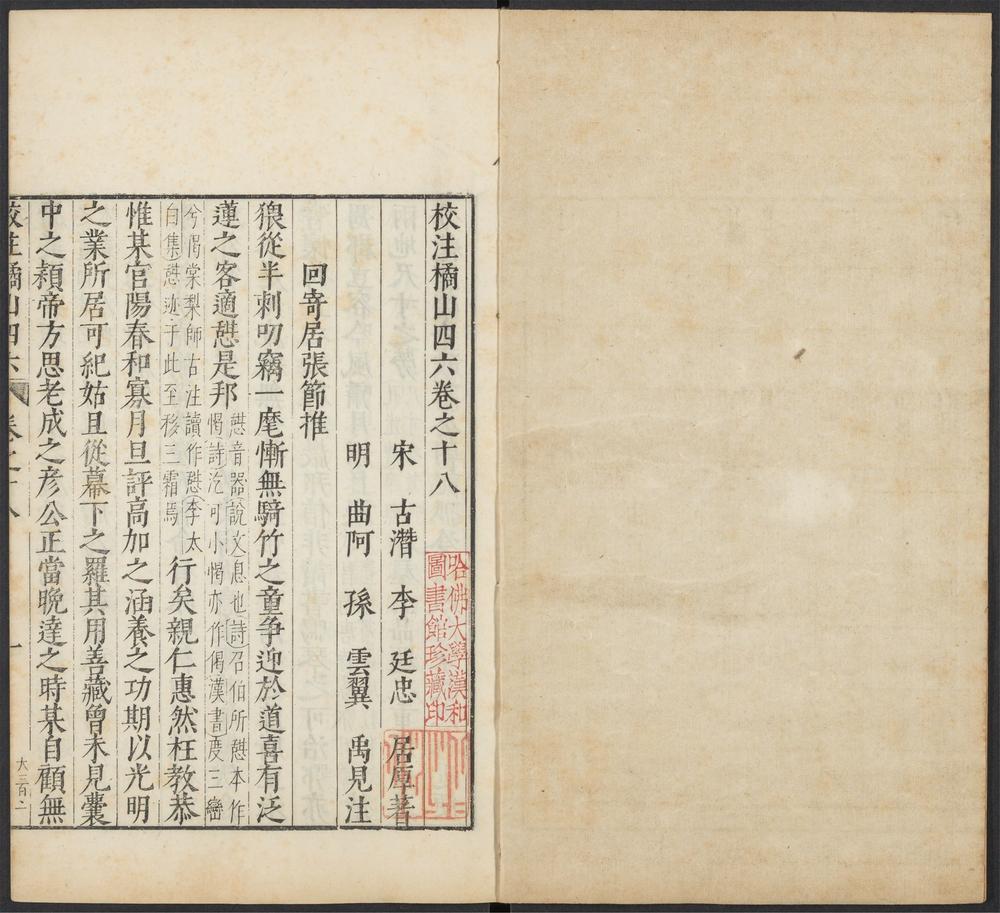 校注橘山四六卷之十八
宋　古潛　李　廷忠　居厚著
明　曲阿　孫　雲翼　禹見注
回寄居張節推
猥從半刺叨竊一麾慚無騎竹之童爭迎於道喜有泛
蓮之客適憇是邦
憇音器說文息也詩召伯所憇本作
愒詩汔可小愒亦作偈漢書度三巒
兮偈棠梨師古注讀作憇李太
白集憇迹于此至移三霜焉
行矣親仁惠然枉教恭
惟某官陽春和寡月旦評高加之涵養之功期以光明
之業所居可紀姑且從幕下之羅其用善藏曾未見囊
中之穎帝方思老成之彦公正當晚達之時某自顧無
校注橘山四六　卷之十八　一
大三百二
哈佛大學漢和
圖書館珍藏印